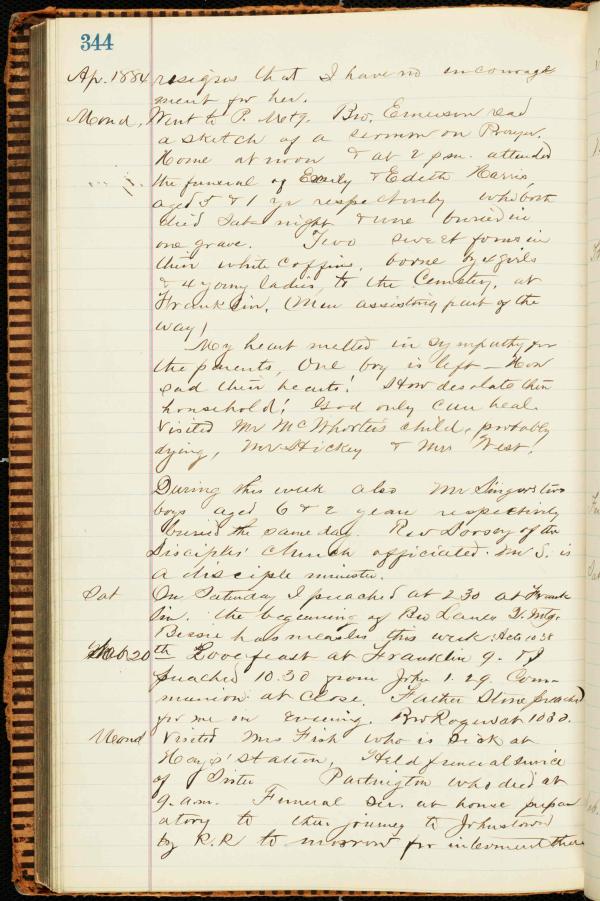 344
Ap. 1884 resigns that I have no encourage
ment for her.
Mond. Went to P. Metg. Bro. Emerson read
a sketch of a sermon on Prayer.
Home at noon & at 2 p.m. attended
the funeral of Emily & Edith Harris,
aged 5 & 1 yr respectively who both
died Sat. night & were buried in
one grave. Two sweet forms in
their white coffins, borne by 4 girls
& 4 young ladies, to the Cemetery, at
Franklin, Men assisting part of the
way!
My heart melted in sympathy for
the parents, One boy is left — How
sad their hearts! How desolate their
household! God only can heal.
Visited Mr McWhorter's child, probably
dying, Mr Hickey & Mrs West.
During this week also Mr Singers two
boys aged 6 & 2 years respectively
buried the same day. Rev Dorsey of the
Disciples' church officiated. Mr S. is
a disciple minister.
Sat On Saturday I preached at 2.30 at Frank
lin. the beginning of Bro Lanes 2. Mtg.
Bessie has measles this week. Acts 10 38
20th Lovefeast at Franklin 9.
preached 10.30 from John 1.29. Com-
munion at close. Father Stone preached
for me in Evening. Bro Rogers at 10 30.
Mond Visited Mrs Fish who is sick at
Hays' Station, Held funeral service
of Sister Partington who died at
9. a.m. Funeral ser. at house prepar
atory to their journey to Johnstown
by R.R to morrow for interment there